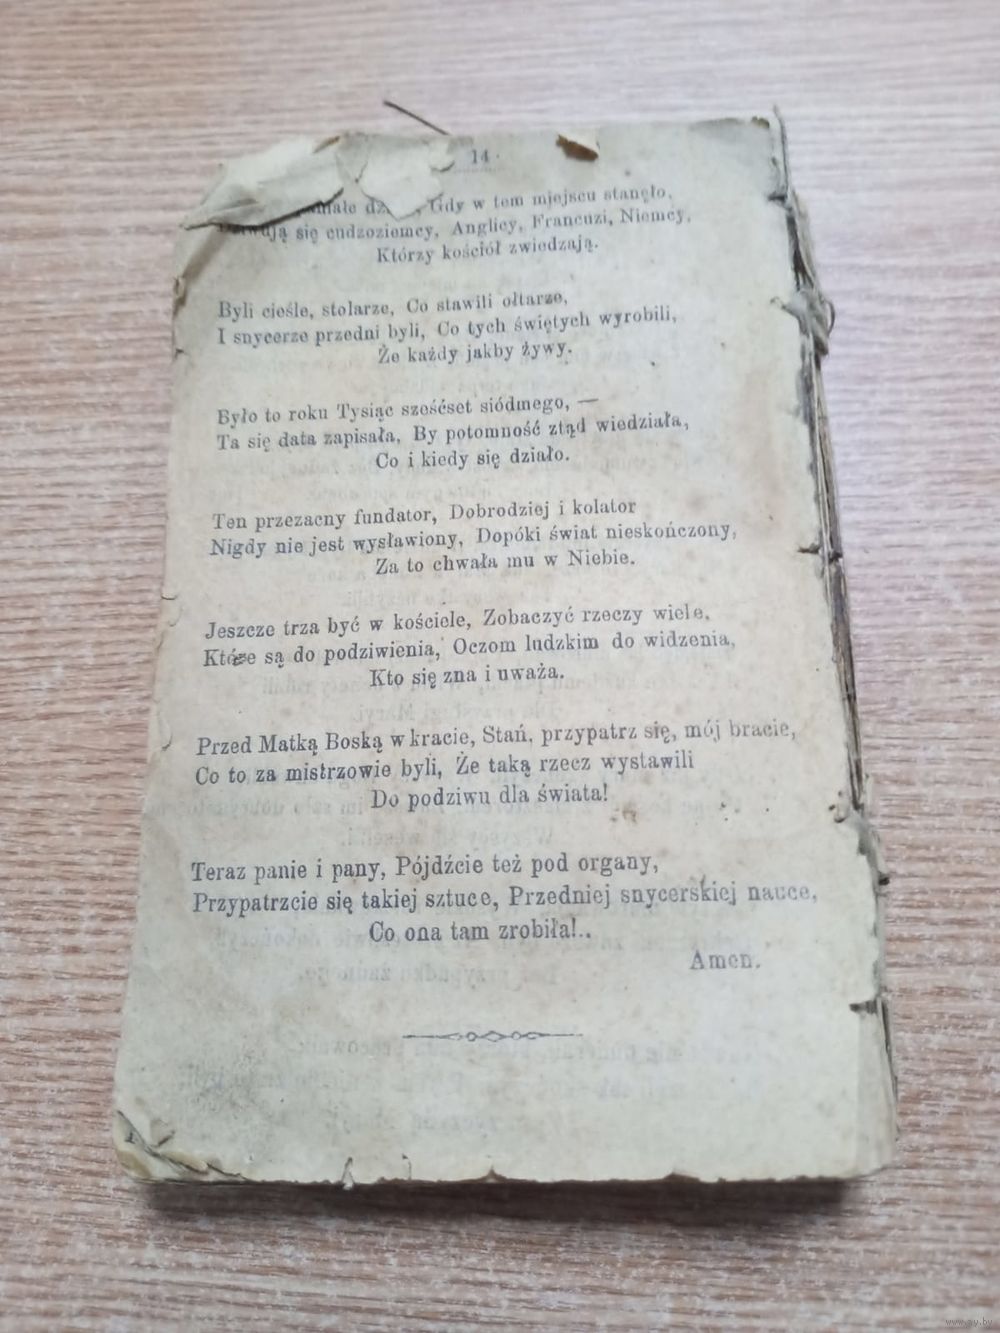 14
Gdy w tem miejscu stanęło,
się cudzoziemcy, Anglicy, Francuzi, Niemcy,
Którzy kościół zwiedzają.
Byli cieśle, stolarze, Co stawili ołtarze,
I snycerze przedni byli, Co tych świętych wyrobili,
Że każdy jakby żywy.
Było to roku Tysiąc sześćset siódmego, —
Ta się data zapisała, By potomność ztąd wiedziała,
Co i kiedy się działo.
Ten przezacny fundator, Dobrodziej i kolator
Nigdy nie jest wysławiony, Dopóki świat nieskończony,
Za to chwała mu w Niebie.
Jeszcze trza być w kościele, Zobaczyć rzeczy wiele,
Które są do podziwienia, Oczom ludzkim do widzenia,
Kto się zna i uważa.
Przed Matką Boską w kracie, Stań, przypatrz się, mój bracie,
Co to za mistrzowie byli, Że taką rzecz wystawili
Do podziwu dla świata!
Teraz panie i pany, Pójdźcie też pod organy,
Przypatrzcie się takiej sztuce, Przedniej snycerskiej nauce,
Co ona tam zrobiła!..
Amen.
www.ay.by